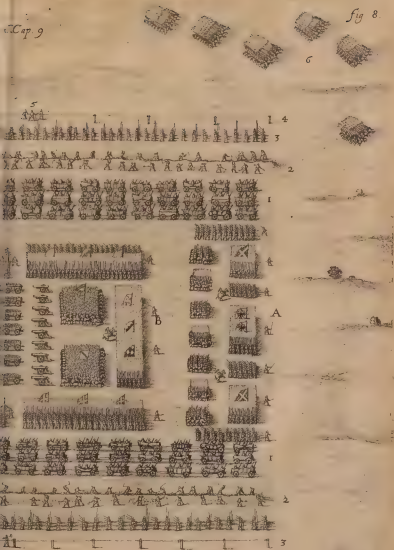 Cap. 9
fig 8.
6
5
4
3
2
1
A
B
1
2
3
4